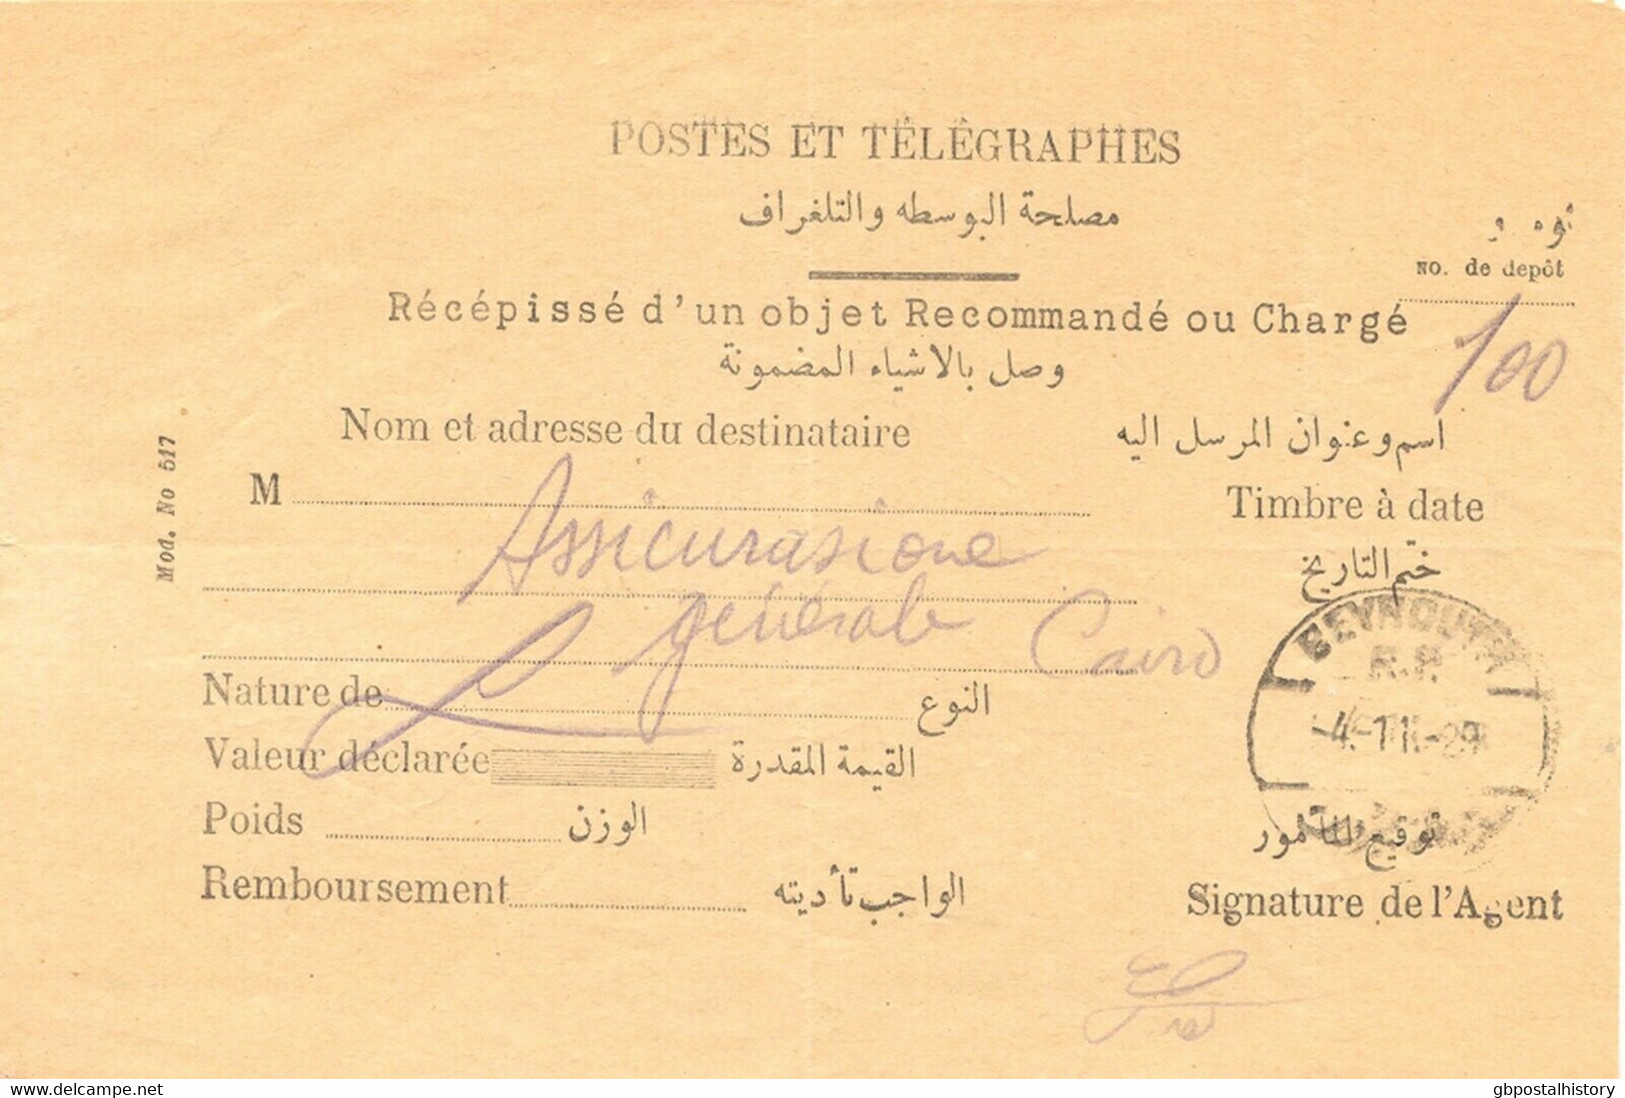 POSTES ET TÉLÉGRAPHES
مصلحة البوسطه والتلغراف
NO. de depôt
Récépissé d'un objet Recommandé ou Chargé
100
وصل بالاشياء المضمونة
Nom et adresse du destinataire
اسم وعنوان المرسل اليه
M
Timbre à date
Assicurasione
ختم التاريخ
générale Cairo
BEYROUTH
R.P.
Nature de
النوع
-4.-11.-29
Valeur déclarée
القيمة المقدرة
Poids
الوزن
توقيع المأمور
Remboursement
الواجب تأديته
Signature de l'Agent
Mod. No 517
www.delcampe.net
gbpostalhistory